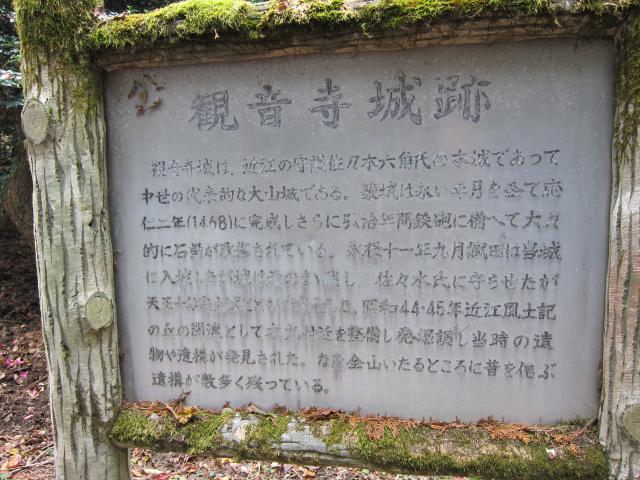 観音寺城跡
観音寺城は、近江の守護佐々木六角氏の本城であって
中世の代表的な大山城である。築城は永い年月を歪て応
仁二年(1468)に完成しさらに弘治年間鉄砲に備へて大々
的に石塁が改修されている。永禄十一年九月織田は当城
に入城し し、佐々木氏に守らせたが
天正十 した。昭和44・45年近江風土記
の丘の関連として本丸付近を整備し発掘調し当時の遺
物や遺構が発見された。なお全山いたるところに昔を偲ぶ
遺構が数多く残っている。